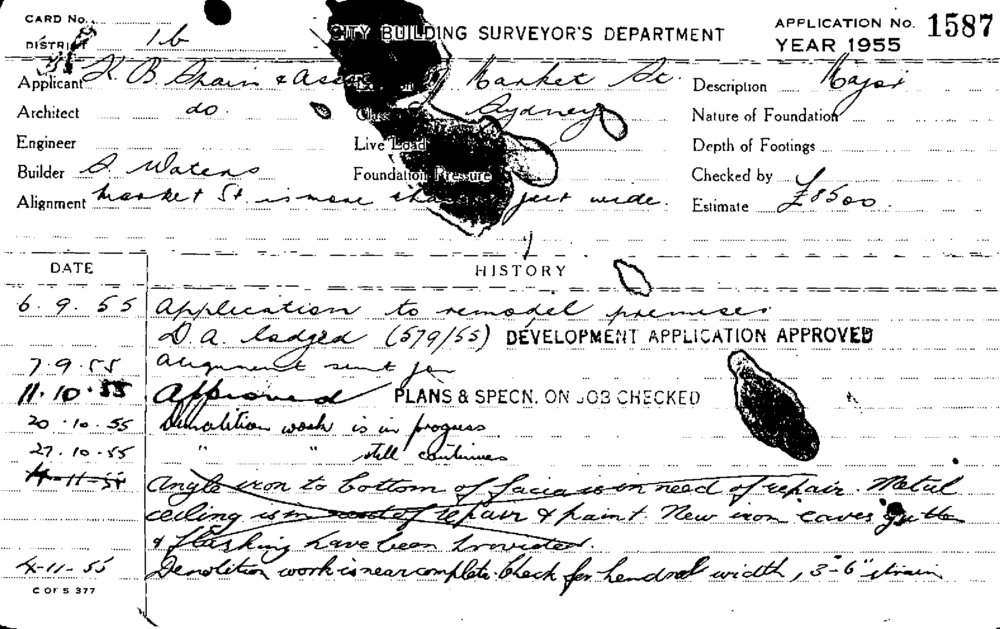 CARD No.
DISTRICT 1b
CITY BUILDING SURVEYOR'S DEPARTMENT
APPLICATION No. 1587
YEAR 1955
Applicant K. B. & Market St. Description Major
Architect do. Class Sydney Nature of Foundation
Engineer Live Load Depth of Footings
Builder Waters Foundation Pressure Checked by
Alignment Market St. is more feet wide. Estimate £8500.
DATE HISTORY
6.9.55 Application to remodel premises.
D.A. lodged (579/55) DEVELOPMENT APPLICATION APPROVED
7.9.55 alignment sent for
11.10.55 Approved PLANS & SPECN. ON JOB CHECKED
20.10.55 Demolition work is in progress.
27.10.55 " " still continues
4-11-55 Angle iron to bottom of facia is in need of repair. Metal
ceiling is in need of repair & paint. New iron eaves gutter
& flashing have been provided.
4-11-55 Demolition work is near complete. Check for width, 3'-6"
C OF S 377